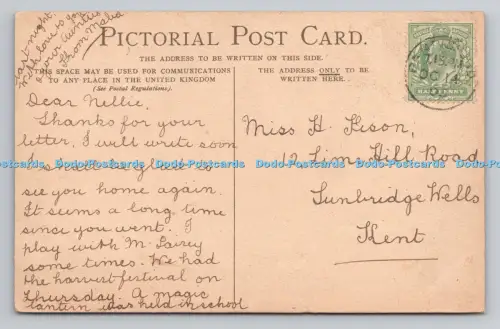 PICTORIAL POST CARD.
THE ADDRESS TO BE WRITTEN ON THIS SIDE.
THIS SPACE MAY BE USED FOR COMMUNICATIONS
TO ANY PLACE IN THE UNITED KINGDOM
(See Postal Regulations).
THE ADDRESS ONLY TO BE
WRITTEN HERE.
HALFPENNY
OC 14
Dear Nellie,
Thanks for your
letter, I will write soon
glad to
see you home again.
It seems a long time
since you went. I
play with M.
some times. We had
the harvest festival on
Thursday. A magic
lantern was held in school
last night.
With love to you
& your aunties
from Mabel
Miss H. Fison,
12, Lime Hill Road
Tunbridge Wells
Kent
Dodo-Postcards Dodo-Postcards Dodo-Postcards Dodo-Postcards Dodo-Postcards Dodo-Postcards